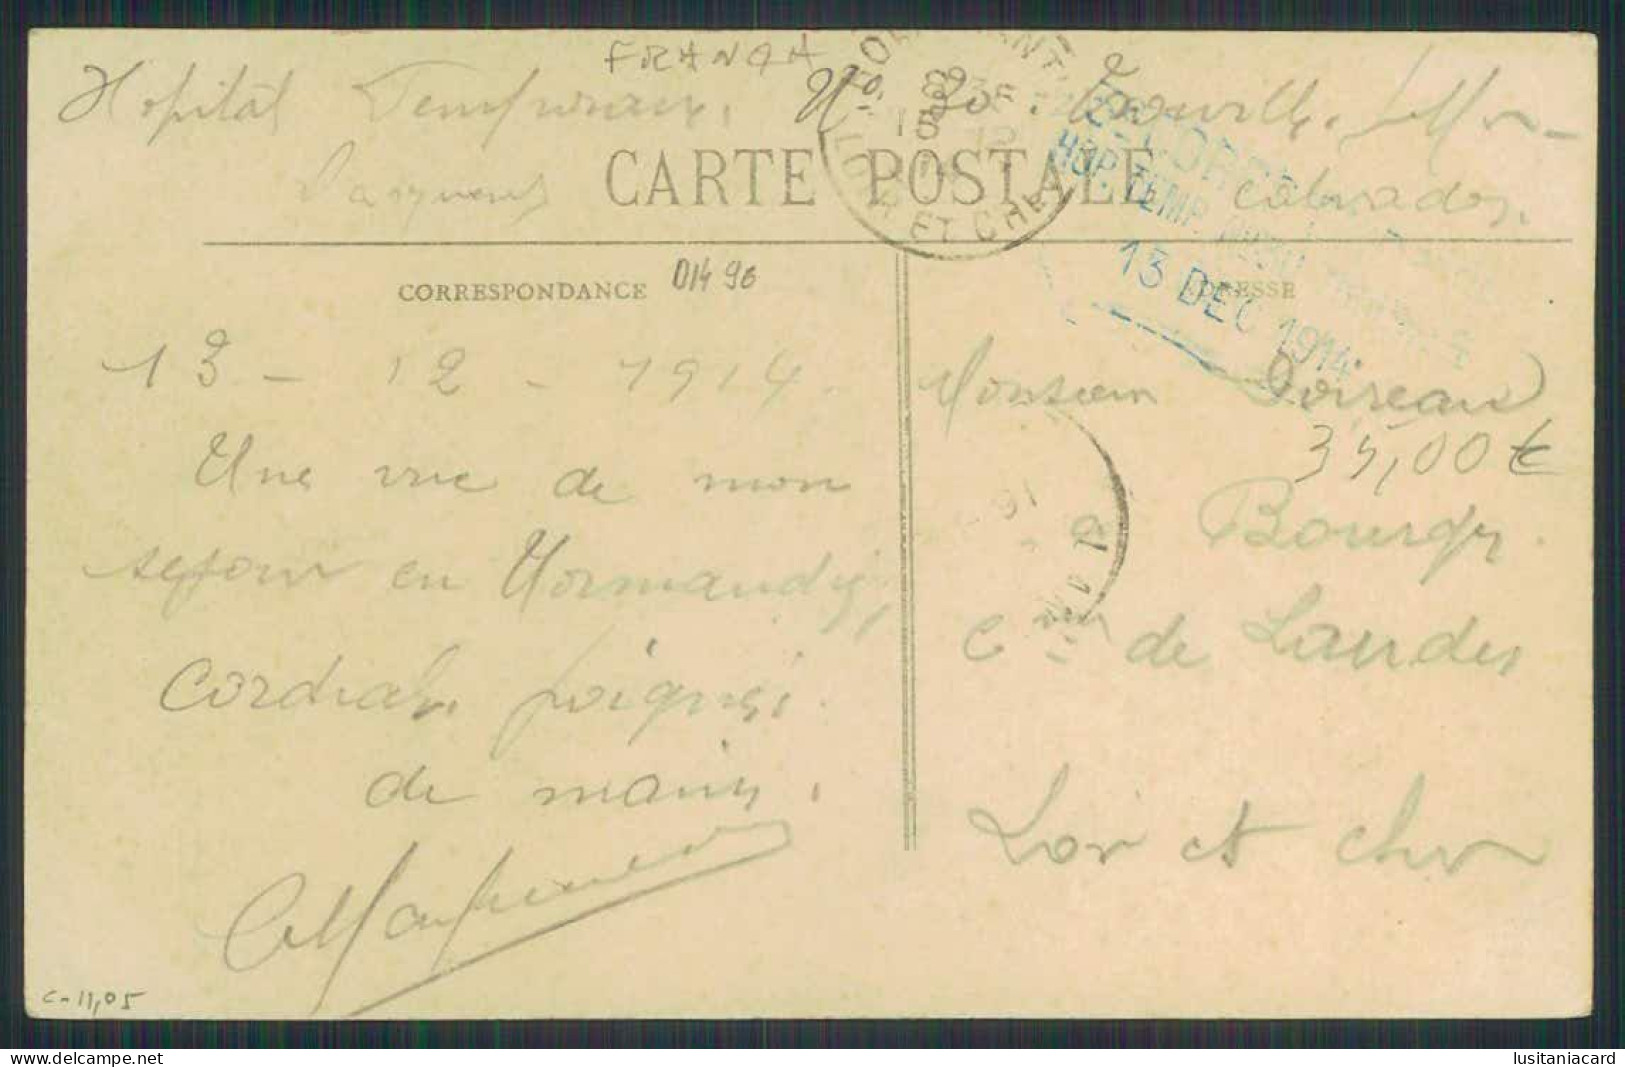 FRANÇA
Hopital Temporaire. No. 30. Trouville. s/Mer
CARTE POSTALE
Calvados.
ET CHER
2E CORPS
HOP. TEMP.
13 DEC 1914
CORRESPONDANCE
01496
ADRESSE
13 - 12 - 1914.
Une vue de mon
sejour en Normandie,
Cordiales poignées
de mains.
Monsieur Doireau
35,00 €
a Bourges.
Cne de Landes
Loir et Cher
16
c-11,05
delcampe.net
lusitaniacard